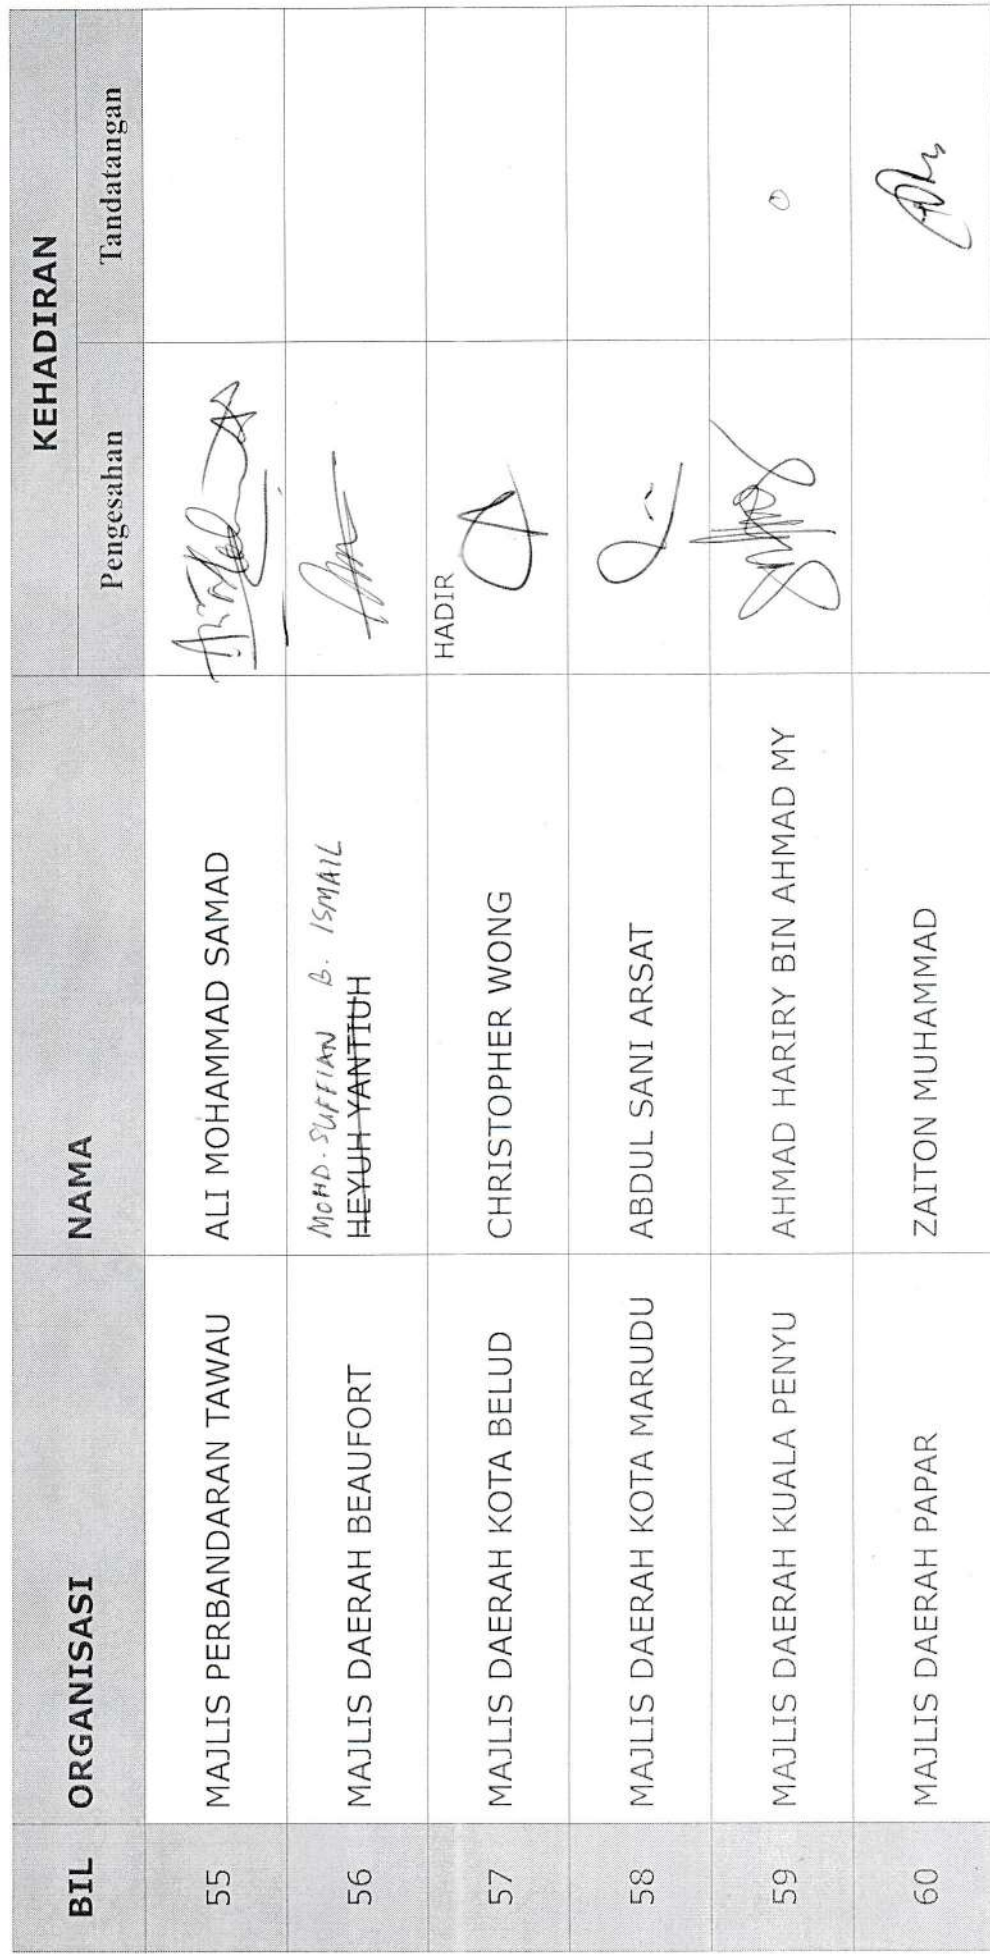 BIL ORGANISASI NAMA KEHADIRAN
Pengesahan Tandatangan
55 MAJLIS PERBANDARAN TAWAU ALI MOHAMMAD SAMAD
MOHD. SUFFIAN B. ISMAIL
56 MAJLIS DAERAH BEAUFORT HEYUH YANTIUH
HADIR
57 MAJLIS DAERAH KOTA BELUD CHRISTOPHER WONG
58 MAJLIS DAERAH KOTA MARUDU ABDUL SANI ARSAT
59 MAJLIS DAERAH KUALA PENYU AHMAD HARIRY BIN AHMAD MY
60 MAJLIS DAERAH PAPAR ZAITON MUHAMMAD